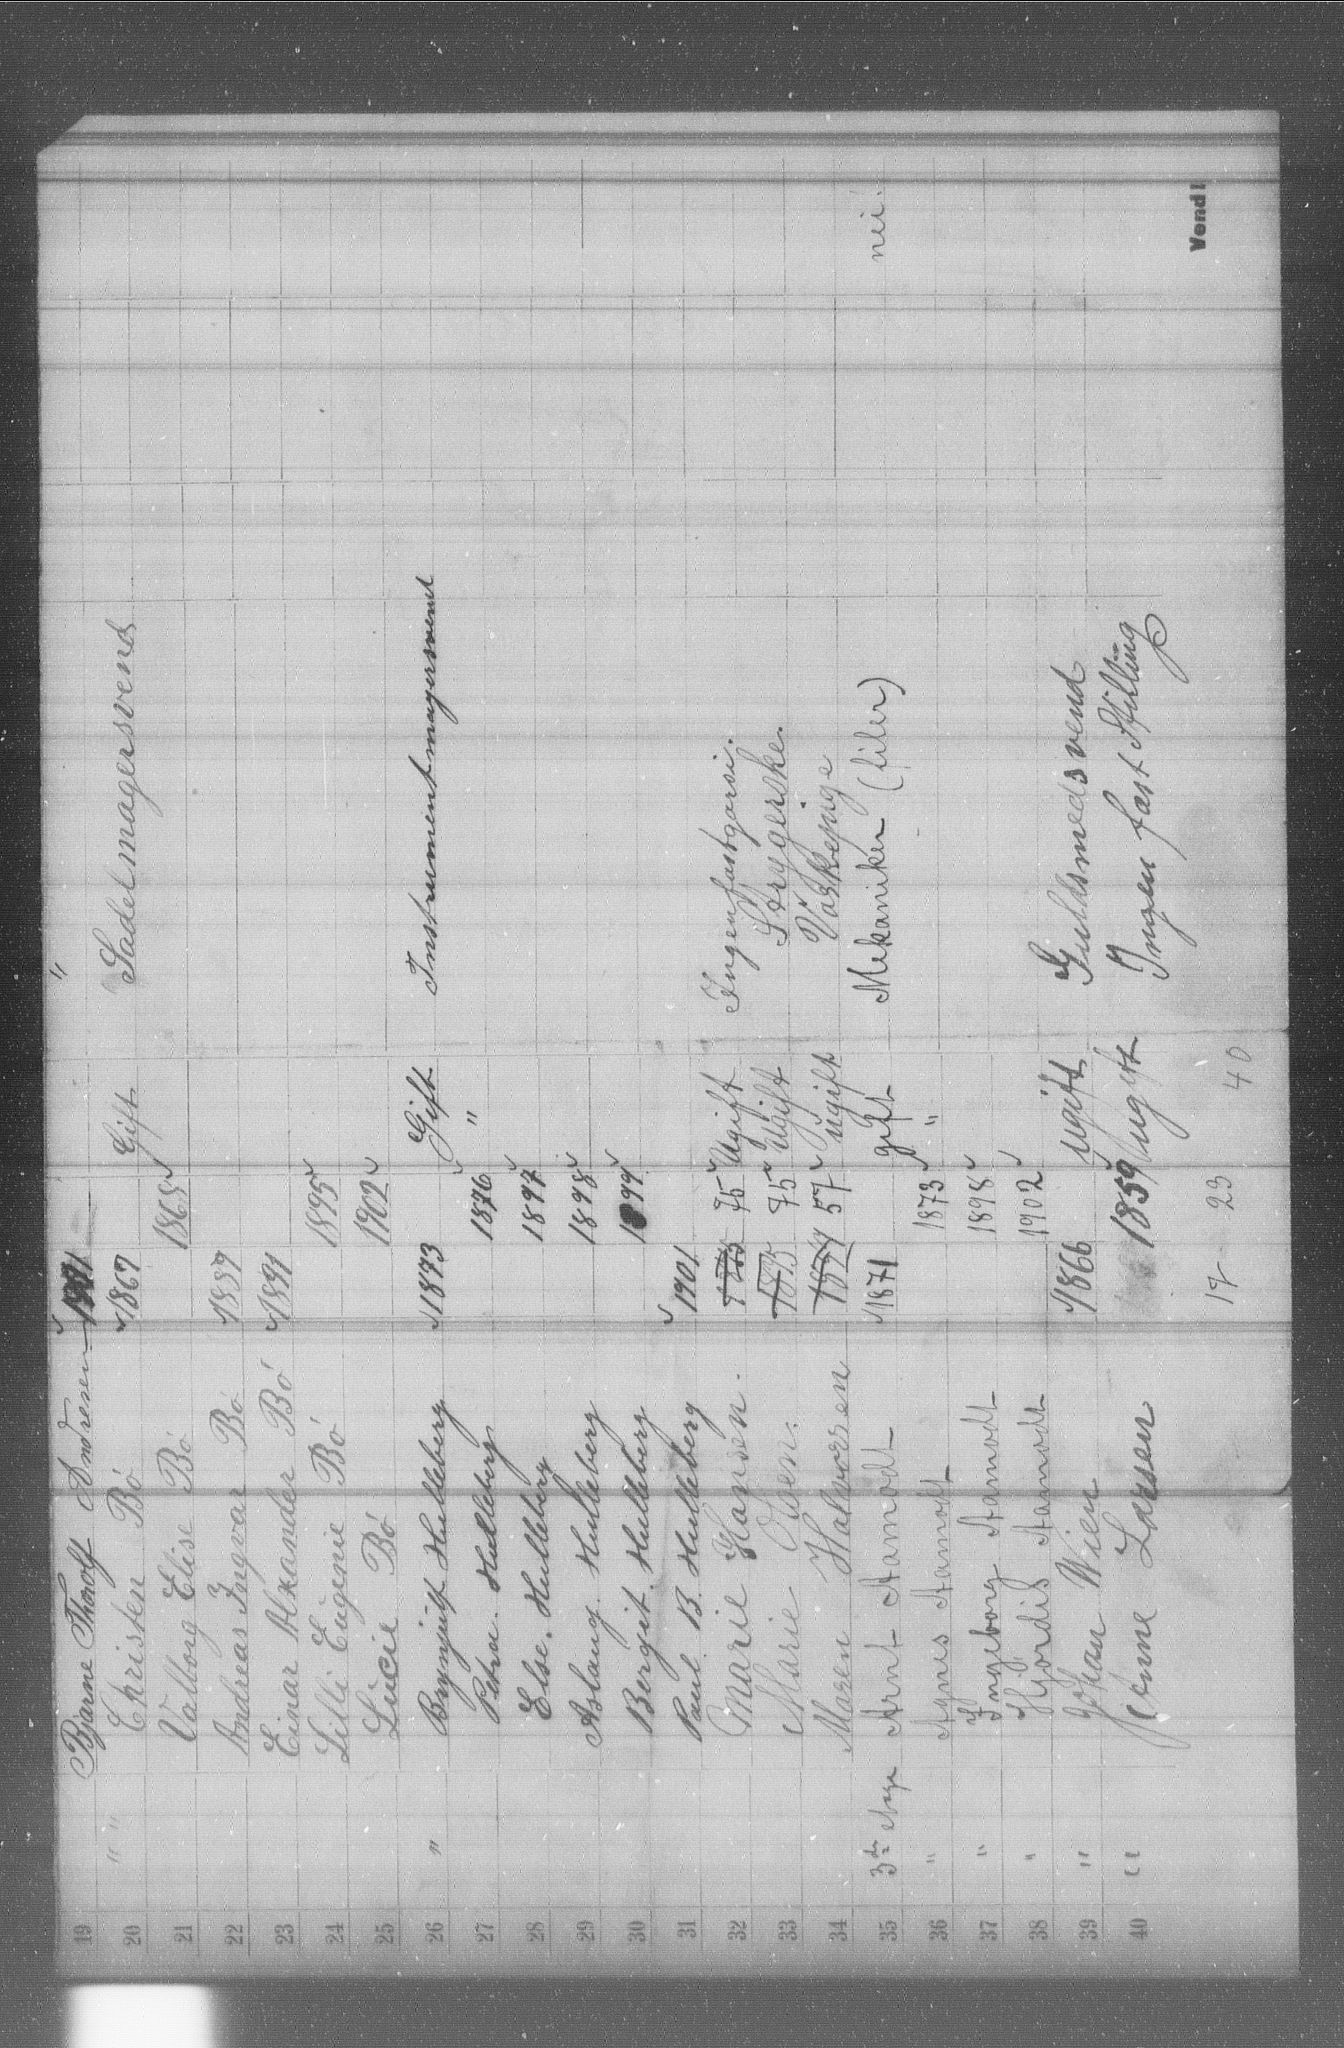 19 Bjarne Thorolf Andresen 1901 "
20 " " Christen Bó 1867 Gift Sadelmagersvend
21 Valborg Elise Bó 1865
22 Andreas Ingvar Bó 1889
23 Einar Alxander Bó 1891
24 Lilli Eügenie Bó 1895
25 Lücie Bó 1902
26 " Brynjulf Hulleberg 1873 Gift Instrumentmagersvend
27 Petra. Hulleberg 1876 "
28 Else. Hulleberg 1897
29 Aslaug. Hulleberg 1898
30 Bergit. Hulleberg 1899
31 Paul B. Hulleberg 1901
32 Marie Hansen. 1875 75 Ugift
33 Marie Olsen. 1875 75 Ugift Strygerske.
34 Maren Halvorsen 57 ugift Vaskepige
35 3die Arnt Aamodt 1871 gift Mekaniker (filer) nei.
36 " Agnes Aamodt 1873 "
37 " Ingeborg Aamodt 1898
38 " Hjórdis Aamodt 1902
39 " Johan Wien 1866 ugift Guldsmedsvend
40 " Anne Larsen 1859 ugift Ingen fast Stilling
23 40
Vend!